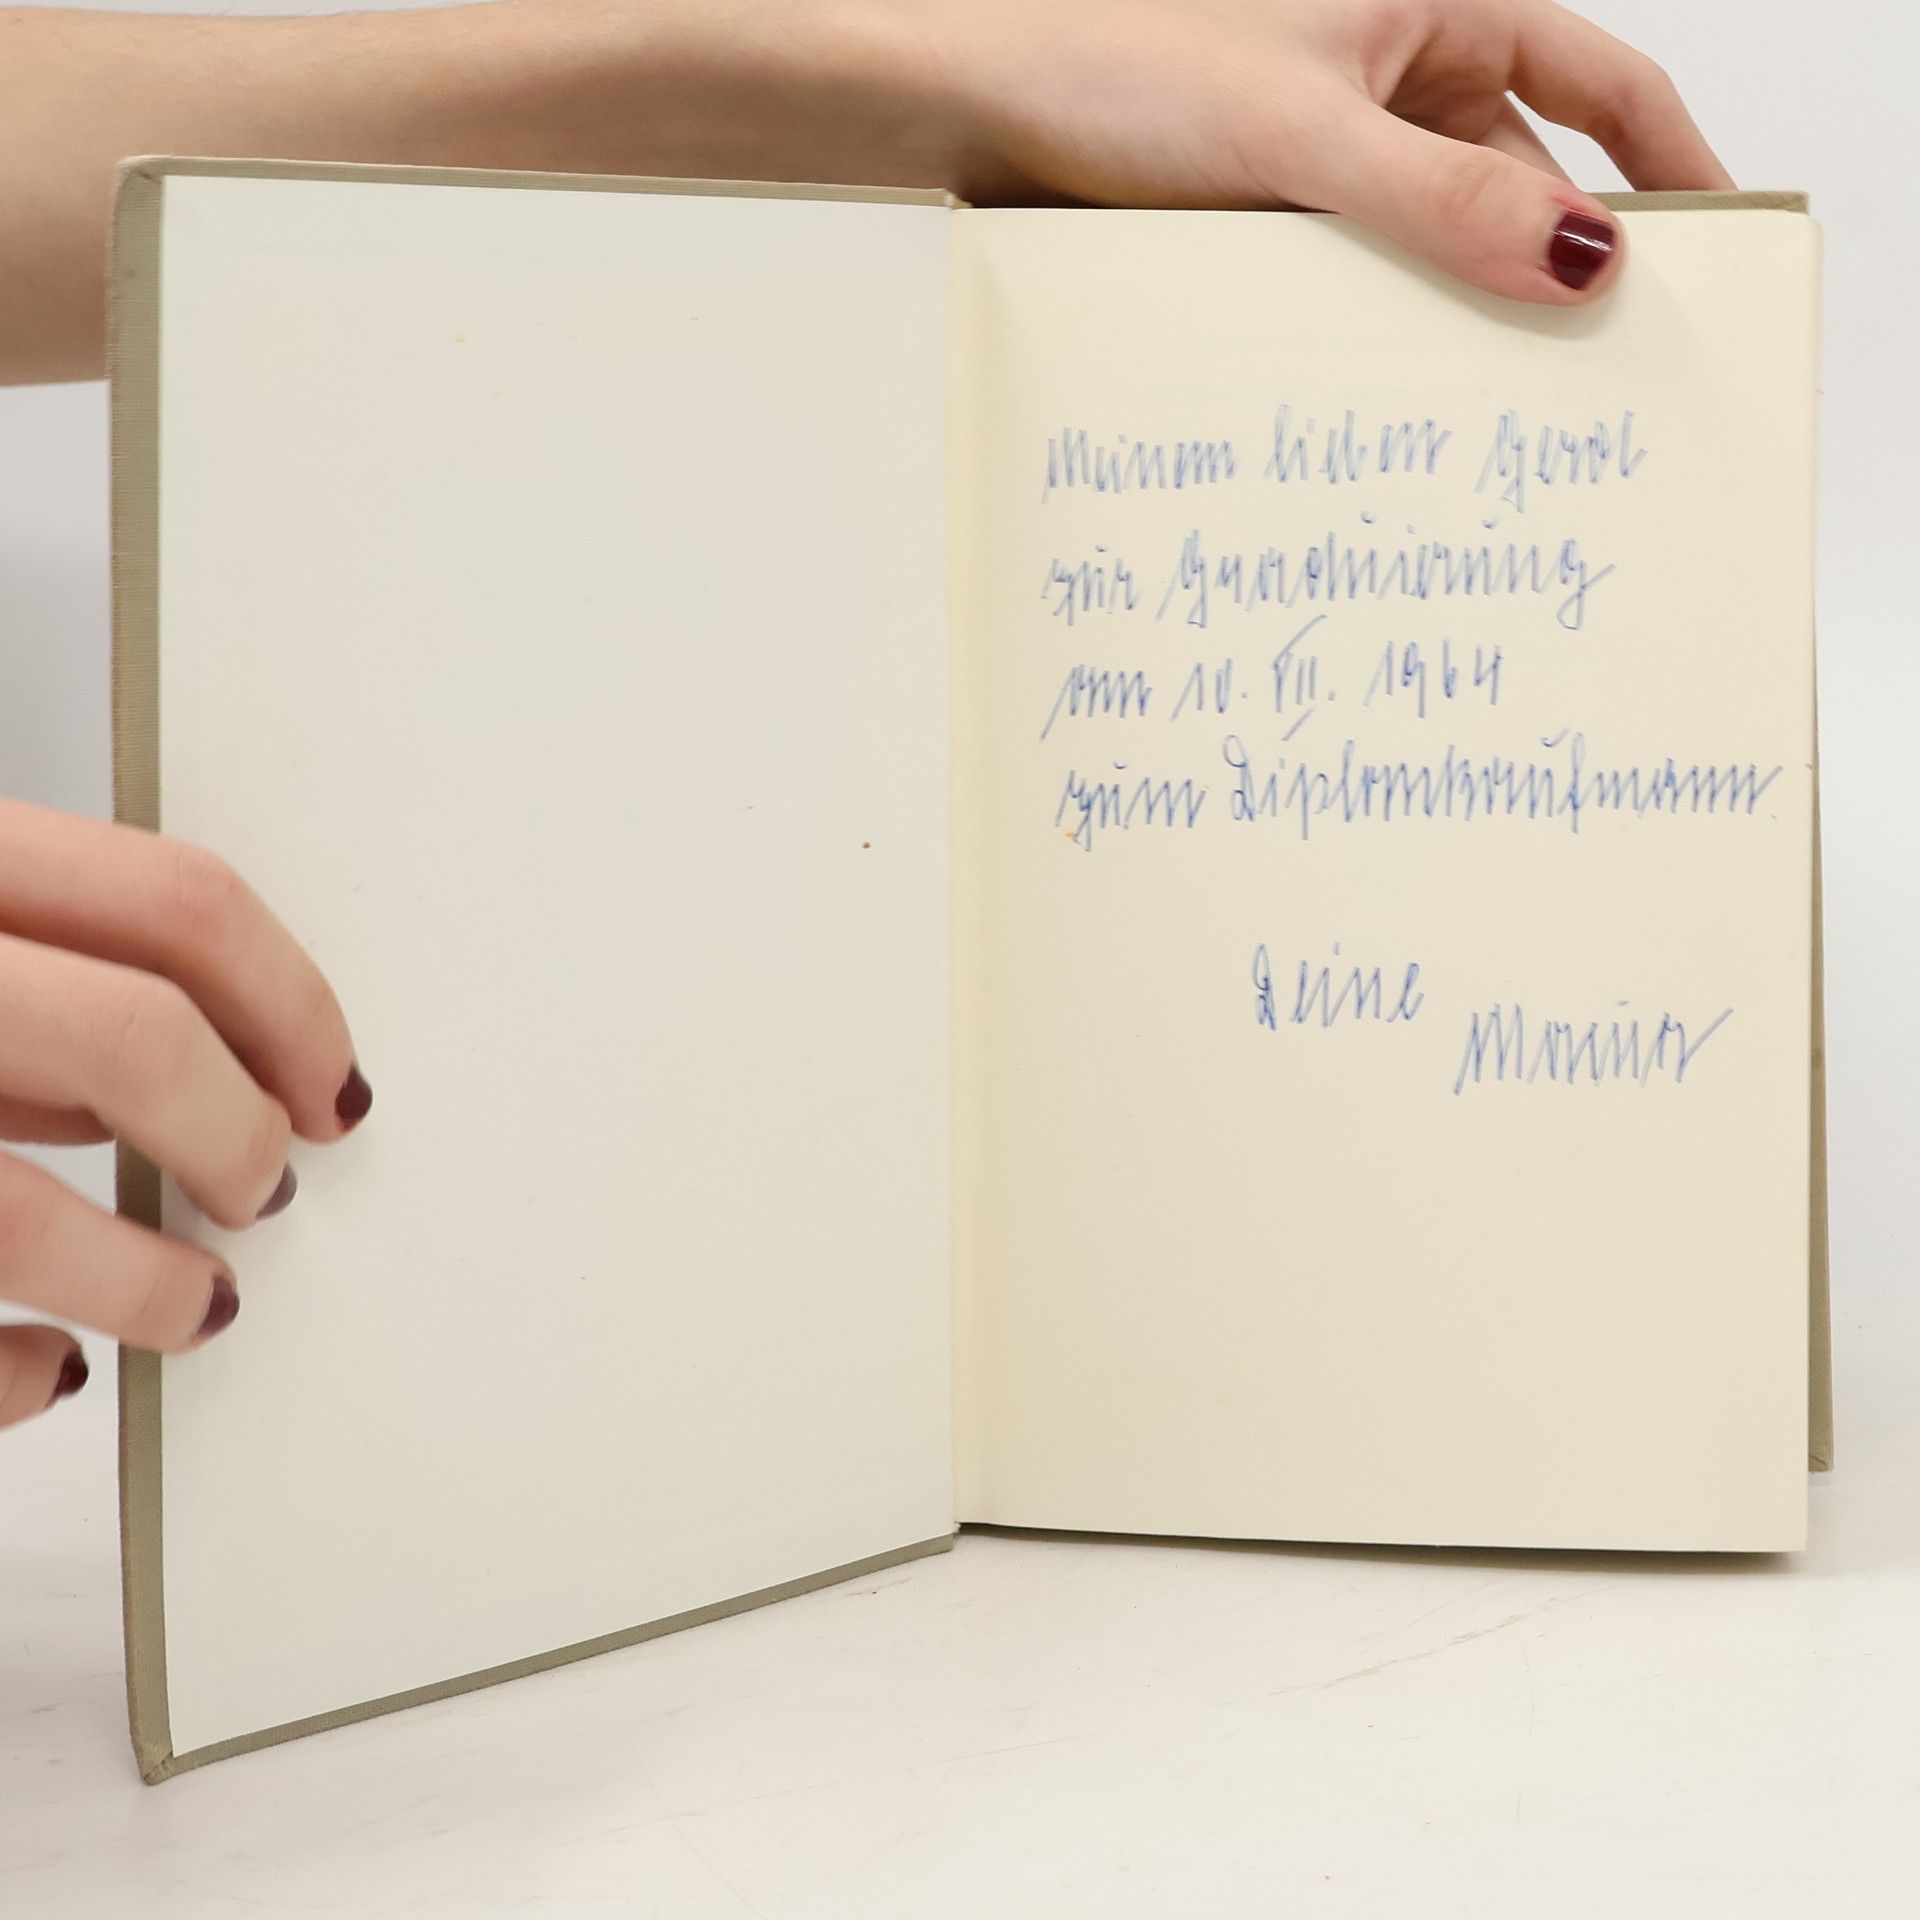 Meinem lieben Gerol
zur Graduierung
am 10. VII. 1964
zum Diplomkaufmann.
Deine